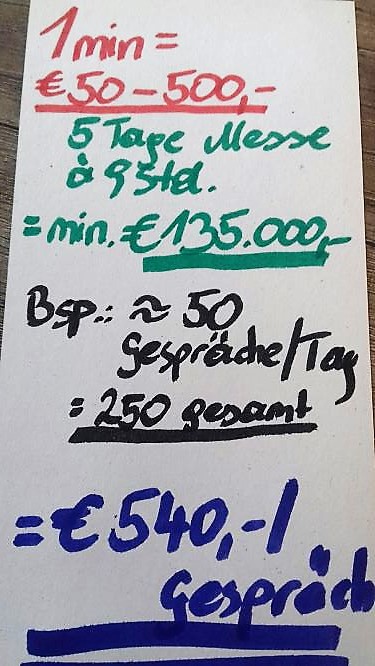 1 min =
€ 50 - 500,-
5 Tage Messe
à 9 Std.
= min. € 135.000,-
Bsp.: ≈ 50
Gespräche/Tag
= 250 gesamt
= € 540,-/
Gespräch